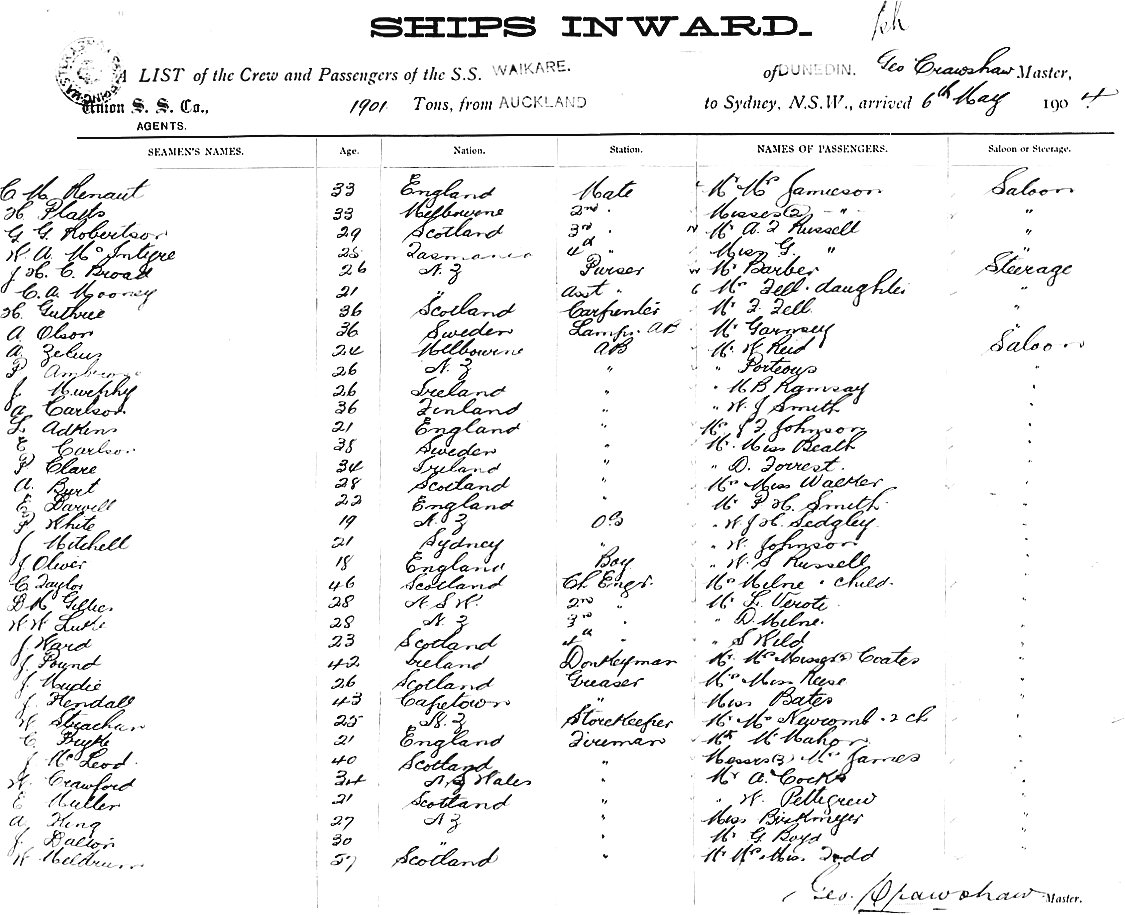 SHIPS INWARD.
A LIST of the Crew and Passengers of the S.S. WAIKARE. of DUNEDIN. Geo Crawshaw Master,
Union S. S. Co., 1901 Tons, from AUCKLAND to Sydney, N.S.W., arrived 6th May 1904
AGENTS.
SEAMEN'S NAMES. Age. Nation. Station. NAMES OF PASSENGERS. Saloon or Steerage.
C M Renaut 33 England Mate Mr Mrs Jamieson Saloon
H Platts 33 Melbourne 2nd " Misses (2) " "
G G Robertson 29 Scotland 3rd " Mr A F Russell "
W. A. McIntyre 28 Tasmania 4th " Miss G. " "
J H. C. Broad 26 N. Z Purser Mr Barber Steerage
C. A. Mooney 21 " Asst " Mrs Fell & daughter "
H Guthrie 36 Scotland Carpenter Mr F Fell "
A Olson 36 Sweden Lamps AB Mr Garnsey "
A Zelius 24 Melbourne AB Mr W Reid Saloon
P 26 N. Z " " Porteous "
J Murphy 26 Ireland " " M B Ramsay "
A Carlson 36 Finland " " W. J Smith "
L Adkins 21 England " Mr J F Johnson "
E Carlson 38 Sweden " Mr Miss Beath "
P Clare 34 Ireland " " D. Forrest. "
A. Burt 28 Scotland " Mrs Miss Walker "
E Darvell 22 England " Mr P H. Smith "
P White 19 N. Z OS " W J H. Sedgley "
J Mitchell 21 Sydney " " W. Johnson "
J Oliver 18 England Boy " W. S Russell "
C Taylor 46 Scotland Ch Engr. Mrs Milne & child. "
D M Gillies 28 N. S W. 2nd " Mr L. Verote. "
W W Luke 28 N. Z 3rd " " D Milne. "
J Ward 23 Scotland 4th " " S Wild "
J Pound 42 Ireland Donkeyman Mr Mrs Misses (2) Coates "
J Mudie 26 Scotland Greaser Mrs Miss Reese "
J Kendall 43 Capetown " Miss Bates "
W Strachan 25 N. Z Storekeeper Mr Mrs Newcomb & 2 ch "
C Pryke 21 England Fireman Mr McMahon "
J McLeod 40 Scotland " Messrs (3) Mrs James "
W Crawford 34 N. S Wales " Mr A. Cocks "
E Muller 21 Scotland " " W. Pettigrew "
A King 27 N Z " Miss Birkmeyer "
J Dalton 30 " " Mr G Boyd "
W Meldrum 57 Scotland " Mr Mrs Miss Todd "
Geo. Crawshaw Master.